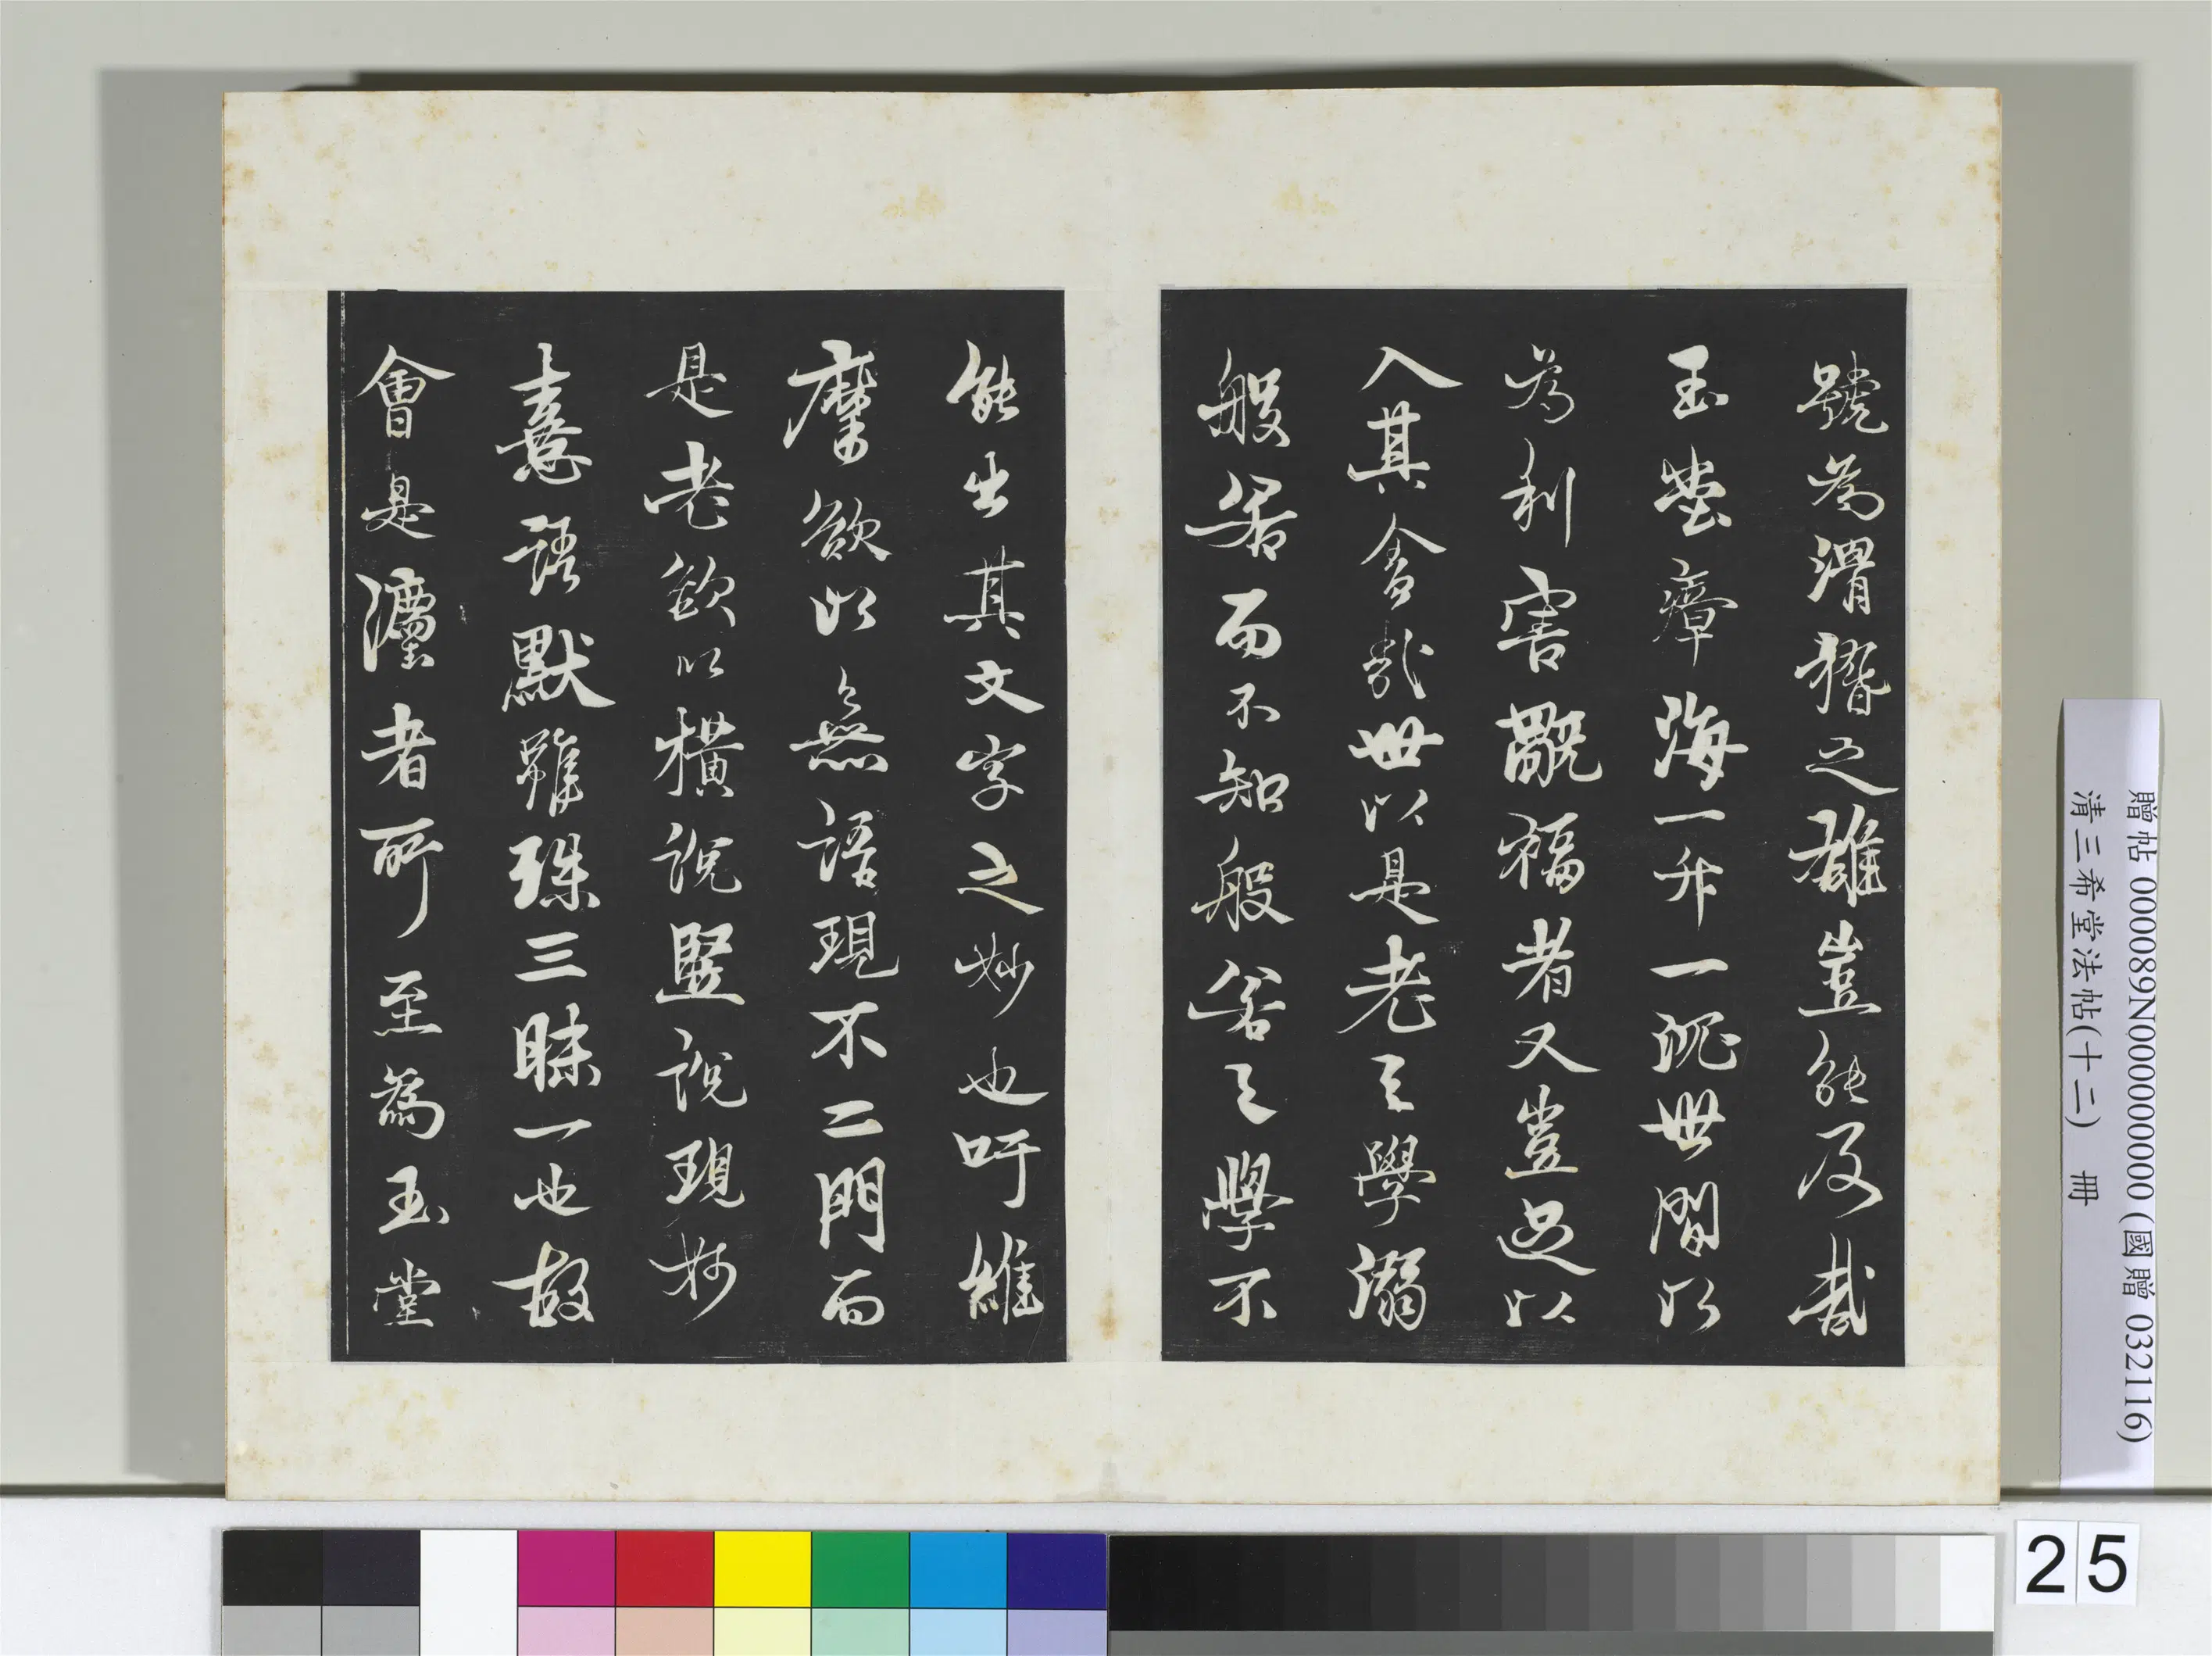 號為滑稽之雄豈能及哉
玉堂瘴海一升一沉世間以
為利害旤福者又豈足以
入其舍哉世以是老之學溺
般若而不知般若之學不
能出其文字之妙也吁維
摩欲以無語現不二門而
是老欲以橫說竪說現妙
憙語默雖殊三昧一也故
會是灋者所至為玉堂
贈帖 000089N000000000 (國贈 032116)
清三希堂法帖(十二) 冊
25